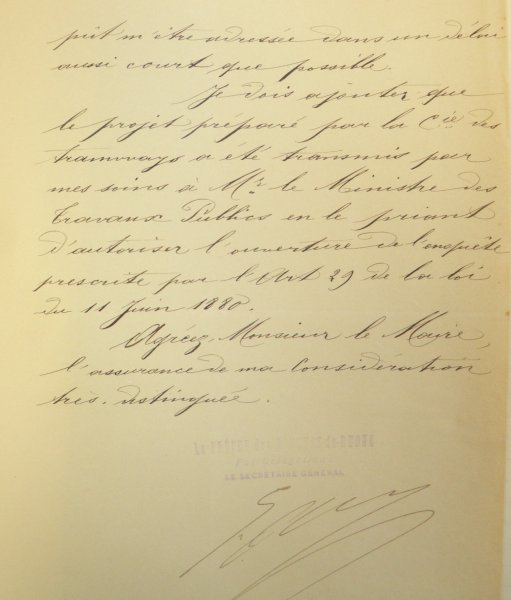 pût m'être adressée dans un délai
aussi court que possible.
Je dois ajouter que
le projet préparé par la Cie des
tramways a été transmis par
mes soins à Mr le Ministre des
Travaux Publics en le priant
d'autoriser l'ouverture de l'enquête
prescrite par l'Art 29 de la loi
du 11 Juin 1880.
Agréez, Monsieur le Maire,
l'assurance de ma Considération
très-distinguée.
LE SECRÉTAIRE GÉNÉRAL